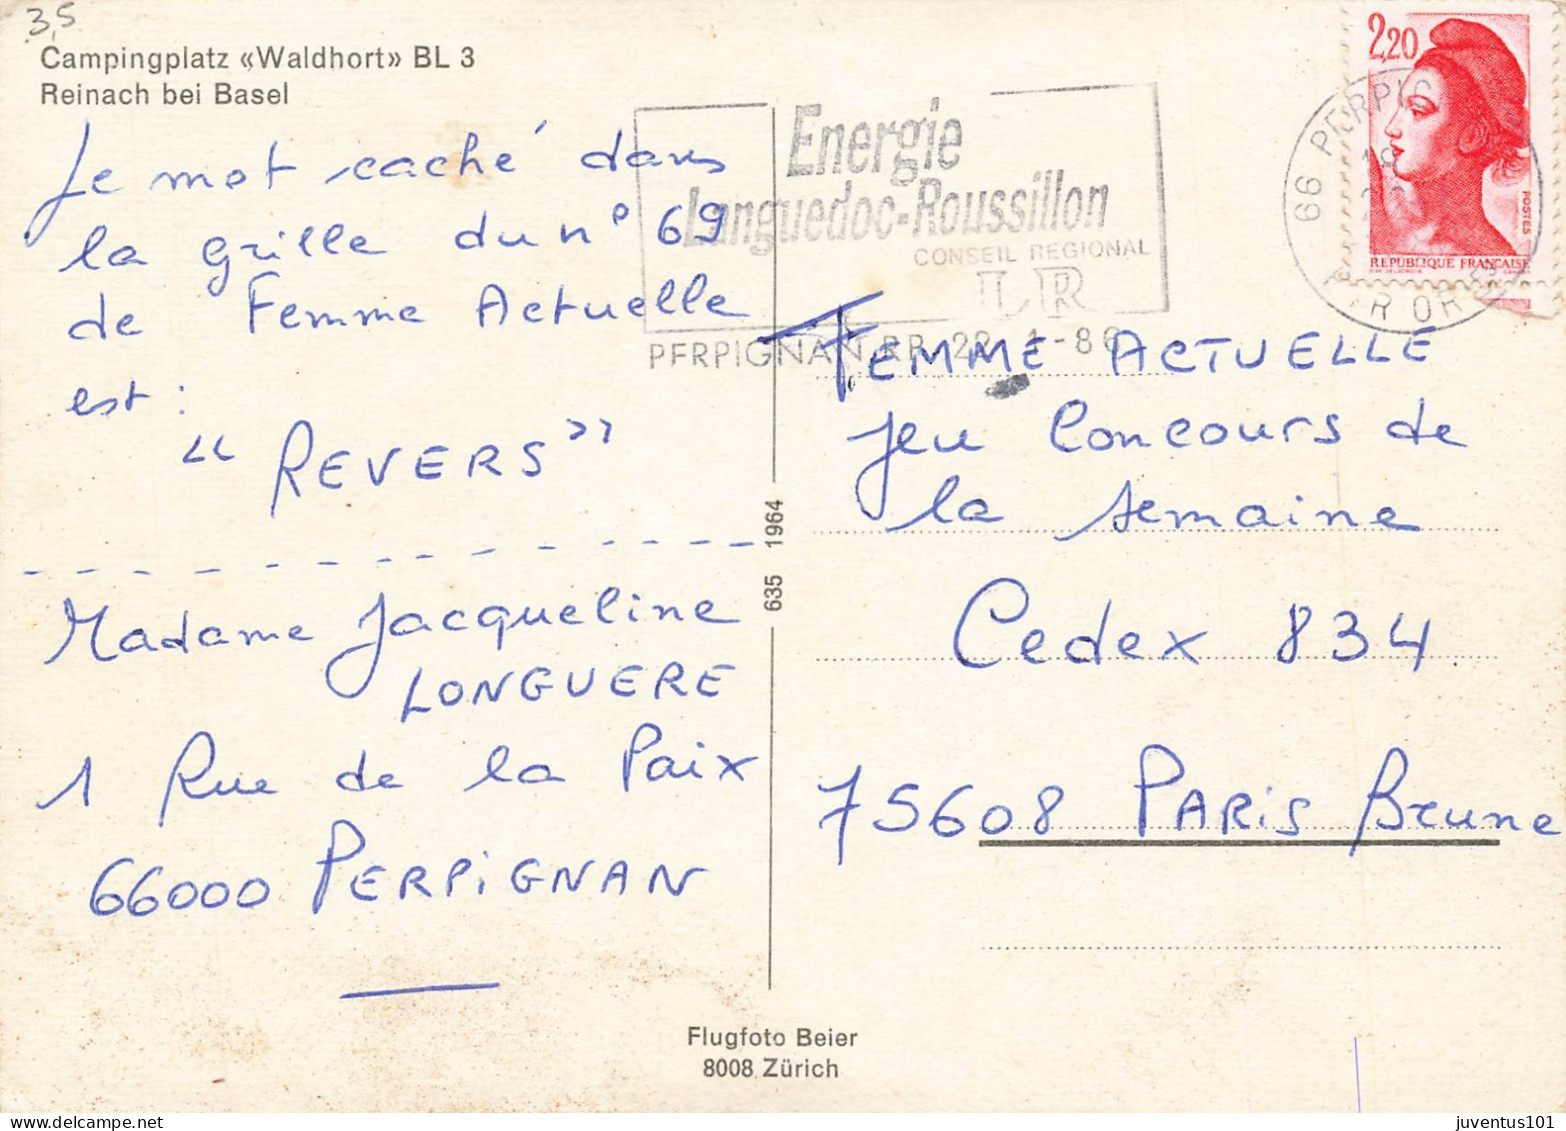 3,5
Campingplatz «Waldhort» BL 3
Reinach bei Basel
Le mot caché dans
la grille du n° 69
de Femme Actuelle
est :
“ REVERS ”
Madame Jacqueline
LONGUERE
1 Rue de la Paix
66000 PERPIGNAN
635 1964
Flugfoto Beier
8008 Zürich
Energie
Languedoc-Roussillon
CONSEIL REGIONAL
LR
PERPIGNAN RP
2,20
POSTES
REPUBLIQUE FRANÇAISE
66 PERPIGNAN
18
FEMME ACTUELLE
Jeu Concours de
la semaine
Cedex 834
75608 PARIS Brune
juventus101